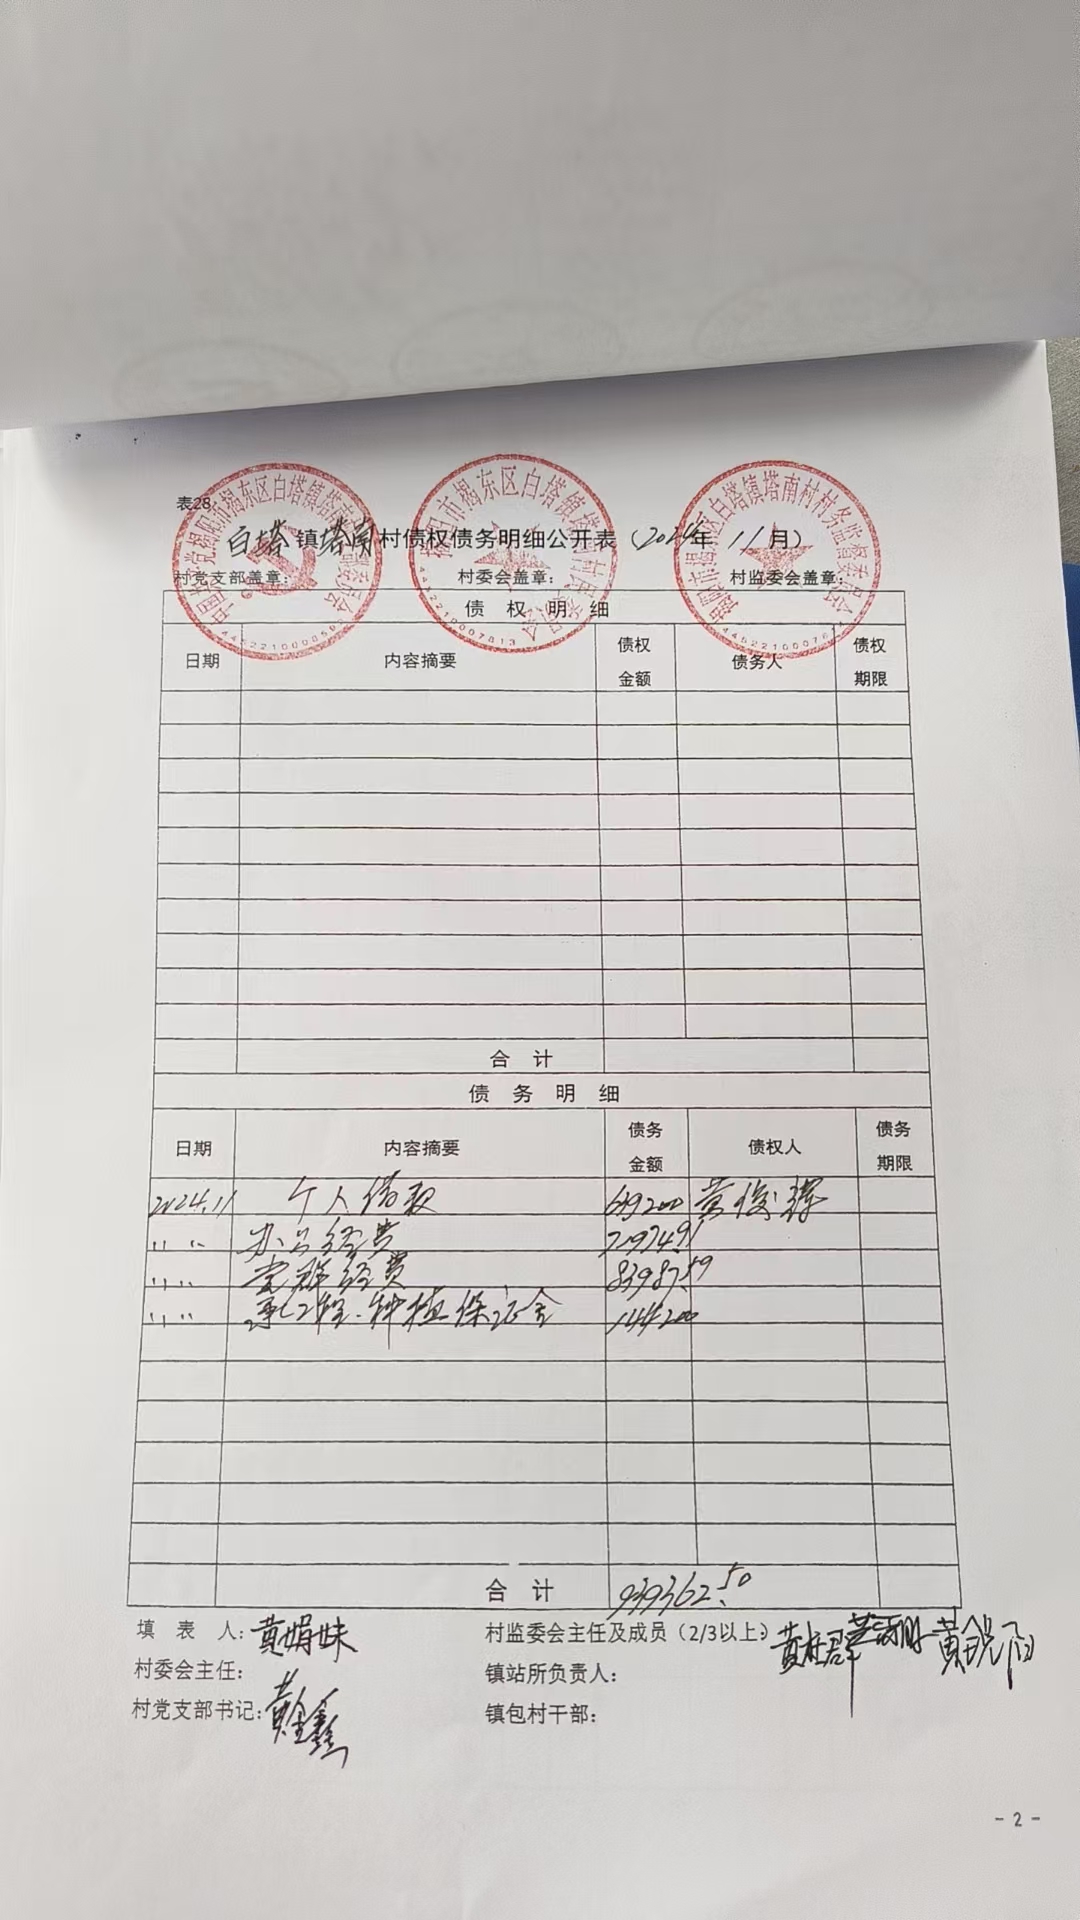 表28:
白塔镇塔南村债权债务明细公开表(2024年11月)
村党支部盖章: 村委会盖章: 村监委会盖章:
债权明细
日期 内容摘要 债权金额 债务人 债权期限
合计
债务明细
日期 内容摘要 债务金额 债权人 债务期限
2024.11 个人借款 619200 黄俊辉
" " 办公经费 71974.91
" " 党群经费 83987.59
" " 种植保证金 144200
合计 939362.50
填表人:黄娟妹 村监委会主任及成员(2/3以上):
村委会主任: 镇站所负责人:
村党支部书记:黄金鑫 镇包村干部:
- 2 -